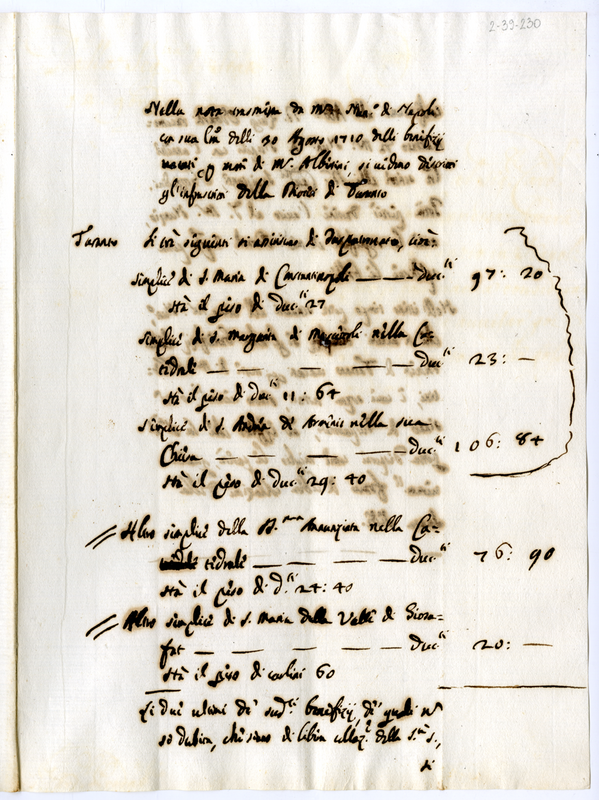 2-39-230
Nella nota trasmessa da Mon.r Nun.o di Napoli
con sua l.ra delli 30 Agosto 1710 delli beneficij
vacati p morte di M.r Albirini, si vedono descritti
gl'infrascritti della Diocesi di Taranto
Taranto Li trè seguenti si asseriscono di Juspatronato, cioè
simplice di S. Maria di Constantinopoli — Duc.ti 97: 20
stà il peso di Duc.ti 27
simplice di S. Margarita di nella Ca=
tedrale — — — — Duc.ti 23: —
stà il peso di duc.ti 11: 64
simplice di S. Andrea di nella sua
Chiesa — — — — Duc.ti 106: 84
stà il peso di duc.ti 29: 40
// Altro simplice della B.ma Annunziata nella Ca=
tedrale — — — — Duc.ti 76: 90
stà il peso di d.ti 24: 40
// Altro simplice di S. Maria della Valle di Giosa=
fat — — — — Duc.ti 20: —
stà il peso di carlini 60
Li due ultimi de' sud.ti beneficij, de' quali n
se dubita, che siano di libera collaz.e della S.tà S.,
si